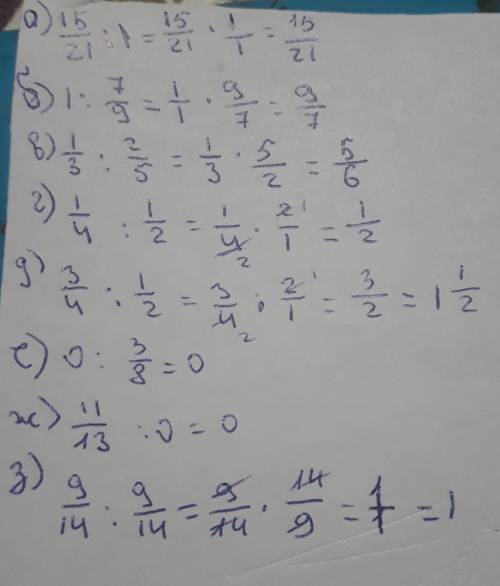 а) 15/21 : 1 = 15/21 · 1/1 = 15/21
б) 1 : 7/9 = 1/1 · 9/7 = 9/7
в) 1/3 : 2/5 = 1/3 · 5/2 = 5/6
г) 1/4 : 1/2 = 1/4 2 · 2 1/1 = 1/2
д) 3/4 : 1/2 = 3/4 2 · 2 1/1 = 3/2 = 1 1/2
е) 0 : 3/8 = 0
ж) 11/13 : 0 = 0
з) 9/14 : 9/14 = 9/14 · 14/9 = 1/1 = 1